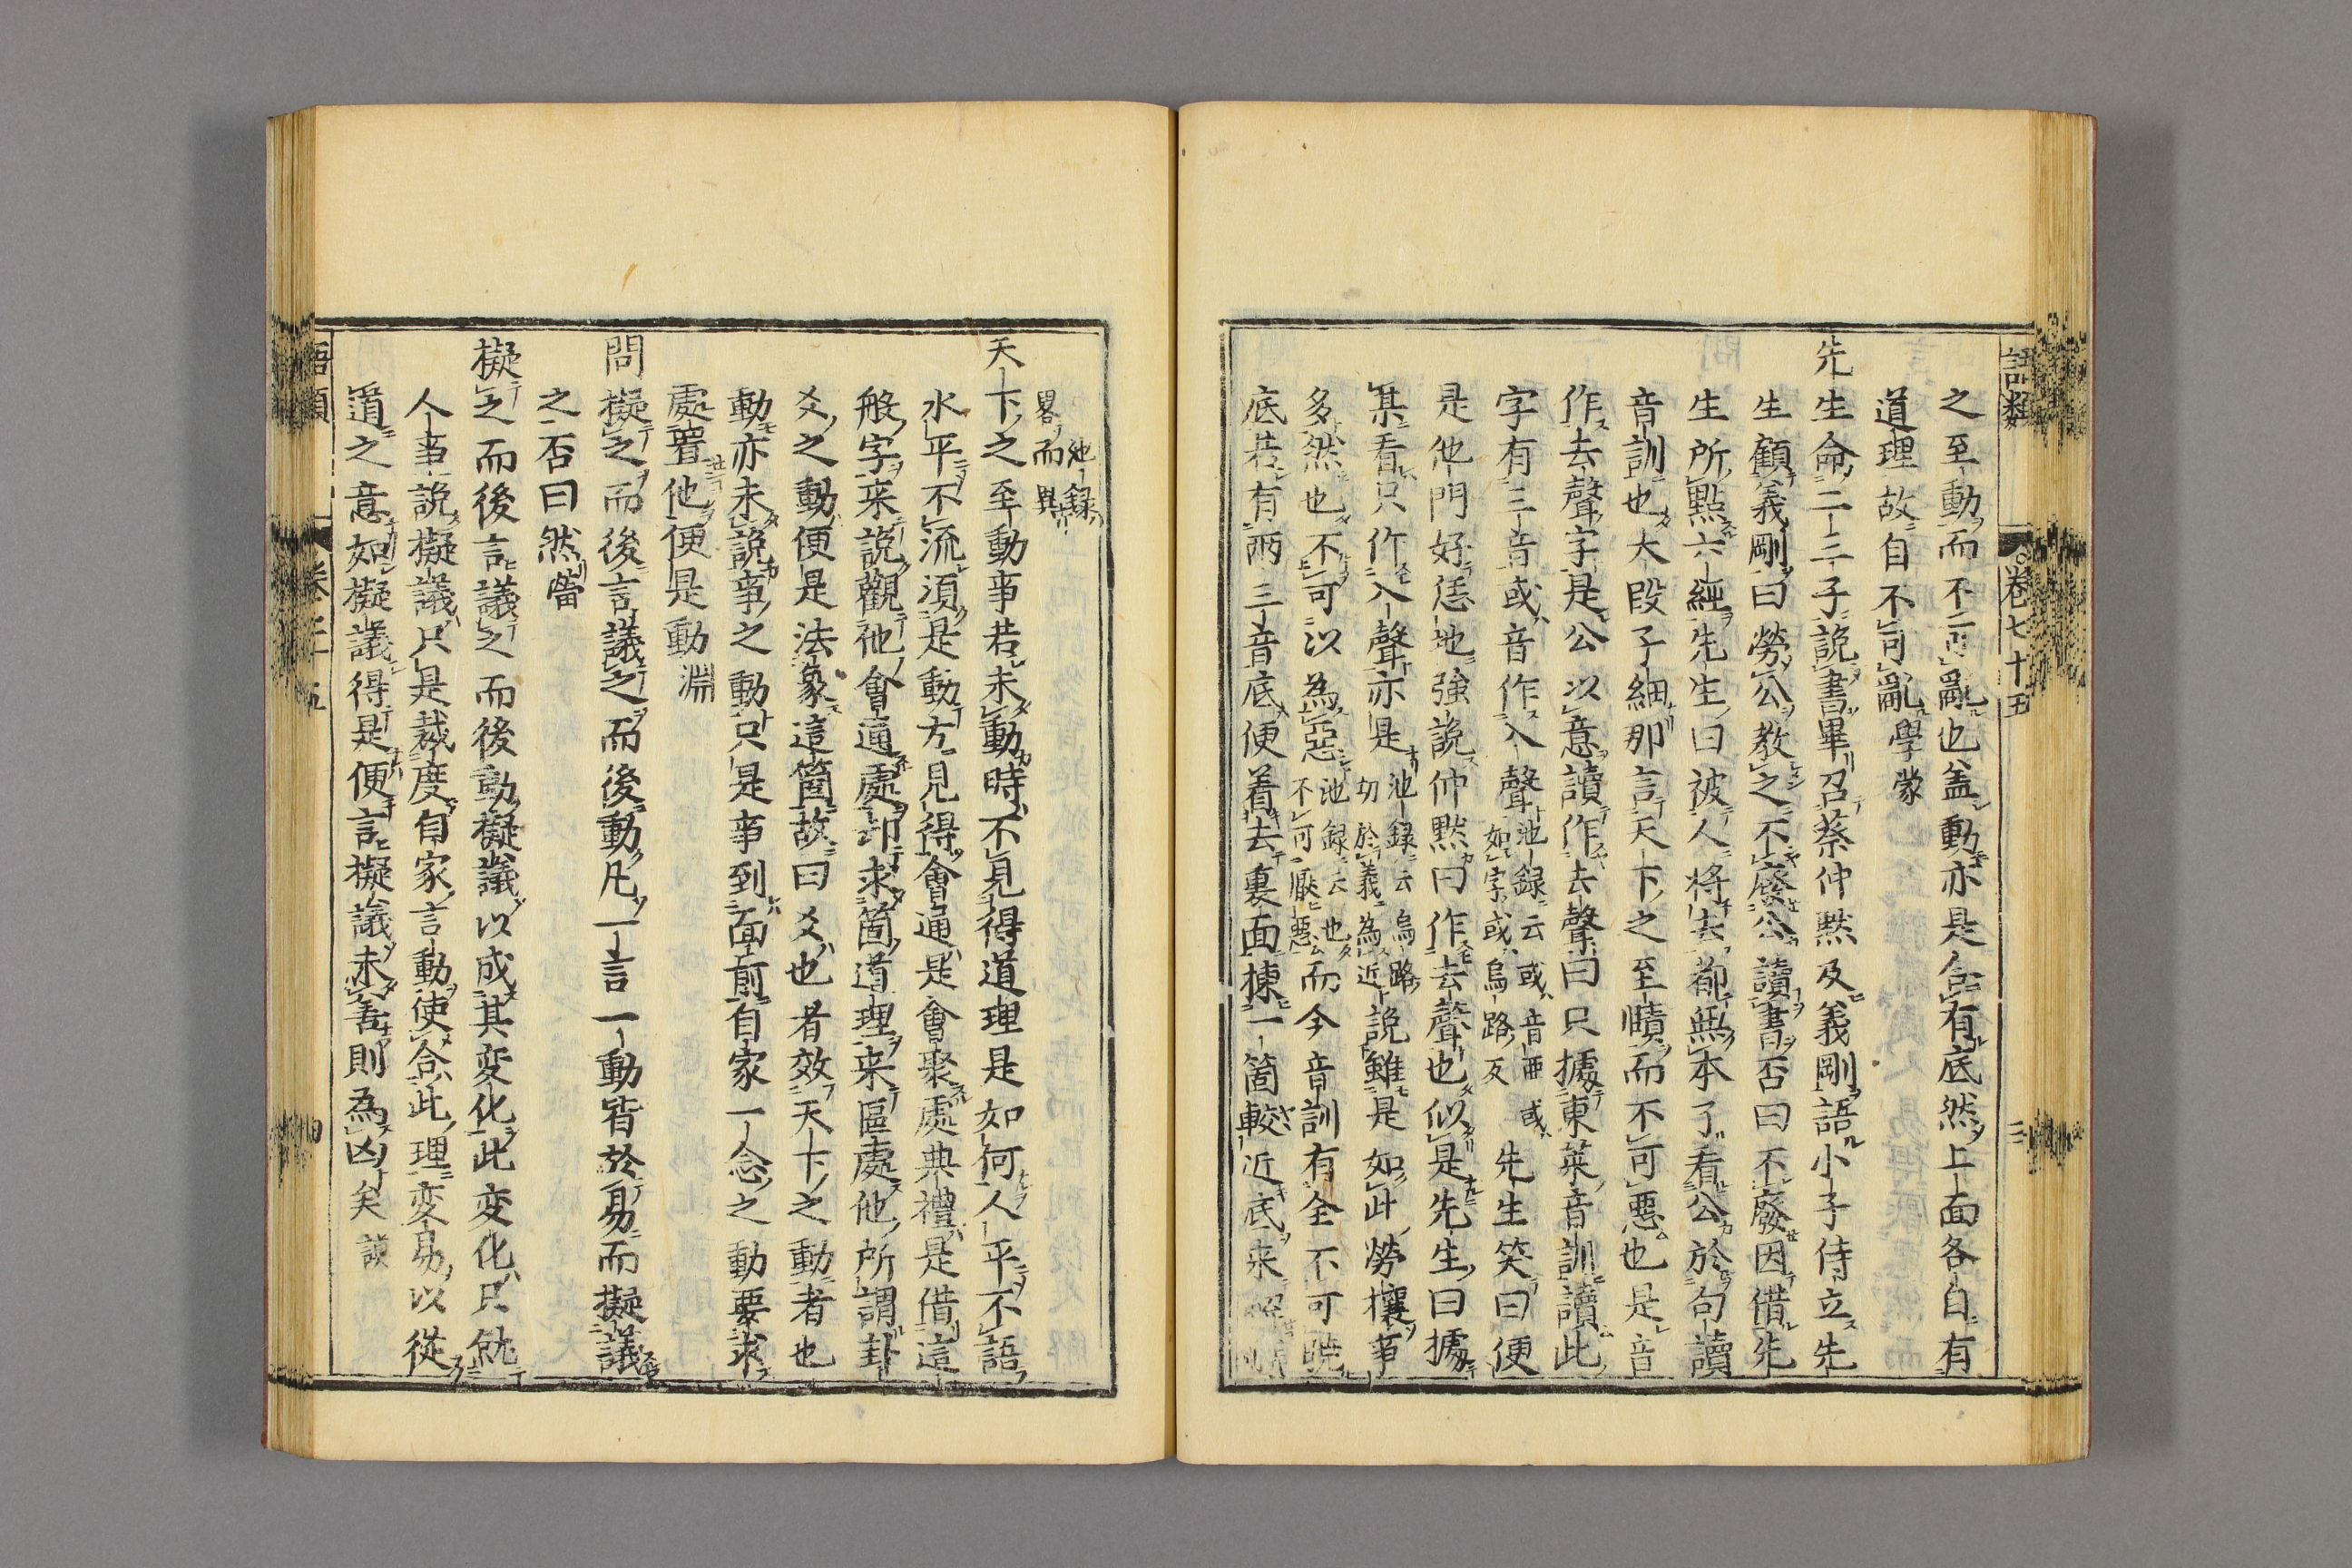 語類
卷七十五
三
之至動而不可亂也盖動亦是合有底然上面各自有
道理故自不可亂學蒙
先生命二三子說書畢召蔡仲黙及義剛語小子侍立先
生顧義剛曰勞公教之不廢公讀書否曰不廢因借先
生所點六經先生曰被人将去都無本了看公於句讀
音訓也大段子細那言天下之至賾而不可惡也是音
作去聲字是公以意讀作去聲曰只據東萊音訓讀此
字有三音或音作入聲池録云或音亜或如字或烏路反先生笑曰便
是他門好恁地強說仲黙曰作去聲也似是先生曰據
某看只作入聲亦是池録云烏路切於義為近說雖是如此勞攘事
多然也不可以為惡池録云也不可厭惡而今音訓有全不可曉
底若有兩三音底便着去裏面揀一箇較近底来
池録畧而異
天下之至動事若未動時不見得道理是如何人平不語
水平不流須是動方見得會通是會聚處典禮是借這
般字来說觀他會通處却求箇道理来區處他所謂卦
爻之動便是法象這箇故曰爻也者效天下之動者也
動亦未說事之動只是事到面前自家一念之動要求
處置他便是動淵
問擬之而後言議之而後動凢一言一動皆於易而擬議
之否曰然㽦
擬之而後言議之而後動擬議以成其変化此変化只就
人事說擬議只是裁度自家言動使合此理変易以從
道之意如擬議得是便吉擬議未善則為凶矣謨
語類